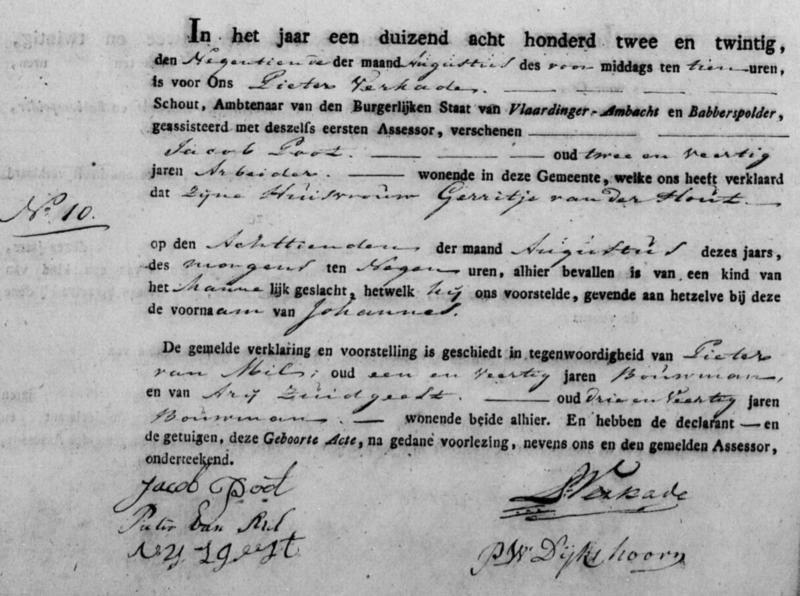 In het jaar een duizend acht honderd twee en twintig,
den Negentiende der maand Augustus des voor middags ten tien uren,
is voor Ons Pieter Verkade.
Schout, Ambtenaar van den Burgerlijken Staat van Vlaardinger-Ambacht en Babberspolder,
geassisteerd met deszelfs eersten Assessor, verschenen
Jacob Poot. oud twee en Veertig
jaren Arbeider. wonende in deze Gemeente, welke ons heeft verklaard
dat Zijne Huisvrouw Gerritje van der Hout.
No. 10.
op den Achttienden der maand Augustus dezes jaars,
des morgens ten Negen uren, alhier bevallen is van een kind van
het Manne lijk geslacht, hetwelk hij ons voorstelde, gevende aan hetzelve bij deze
de voornaam van Johannes.
De gemelde verklaring en voorstelling is geschiedt in tegenwoordigheid van Pieter
van Mil; oud een en Veertig jaren Bouwman,
en van Arij Zuidgeest. oud drie en Veertig jaren
Bouwman. wonende beide alhier. En hebben de declarant — en
de getuigen, deze Geboorte Acte, na gedane voorlezing, nevens ons en den gemelden Assessor,
onderteekend.
Jacob Poot
P Verkade
Pieter Van Mil
P. W. Dijkshoorn